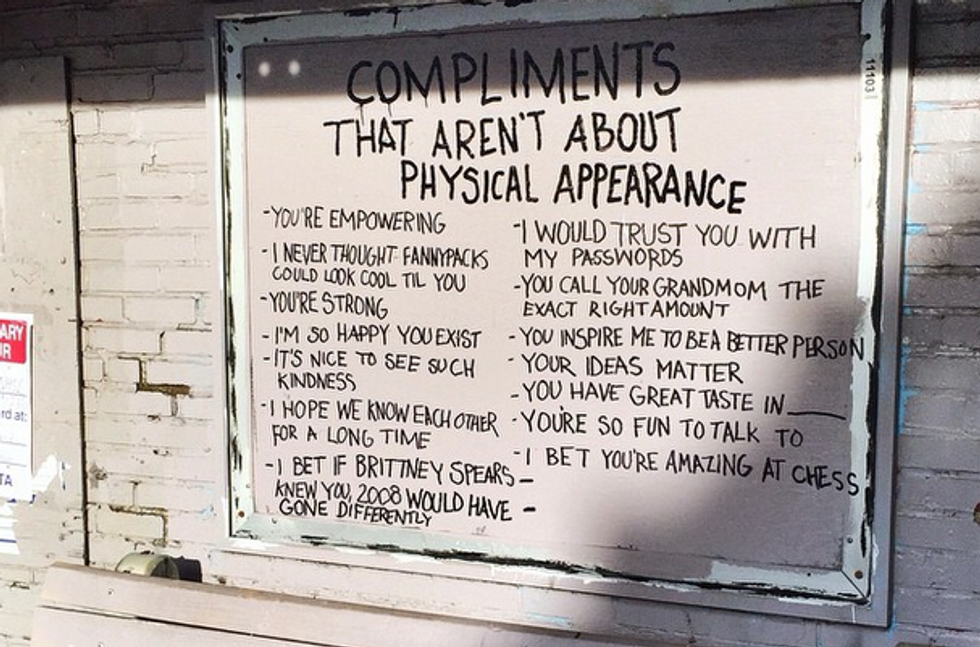 COMPLIMENTS
THAT AREN'T ABOUT
PHYSICAL APPEARANCE
-YOU'RE EMPOWERING
-I NEVER THOUGHT FANNYPACKS
COULD LOOK COOL TIL YOU
-YOU'RE STRONG
-I'M SO HAPPY YOU EXIST
-IT'S NICE TO SEE SUCH
KINDNESS
-I HOPE WE KNOW EACH OTHER
FOR A LONG TIME
-I BET IF BRITTNEY SPEARS
KNEW YOU, 2008 WOULD HAVE
GONE DIFFERENTLY
-I WOULD TRUST YOU WITH
MY PASSWORDS
-YOU CALL YOUR GRANDMOM THE
EXACT RIGHT AMOUNT
-YOU INSPIRE ME TO BE A BETTER PERSON
-YOUR IDEAS MATTER
-YOU HAVE GREAT TASTE IN____
-YOU'RE SO FUN TO TALK TO
-I BET YOU'RE AMAZING AT CHESS
-
-
11103
ARY
IR
rd at:
TA